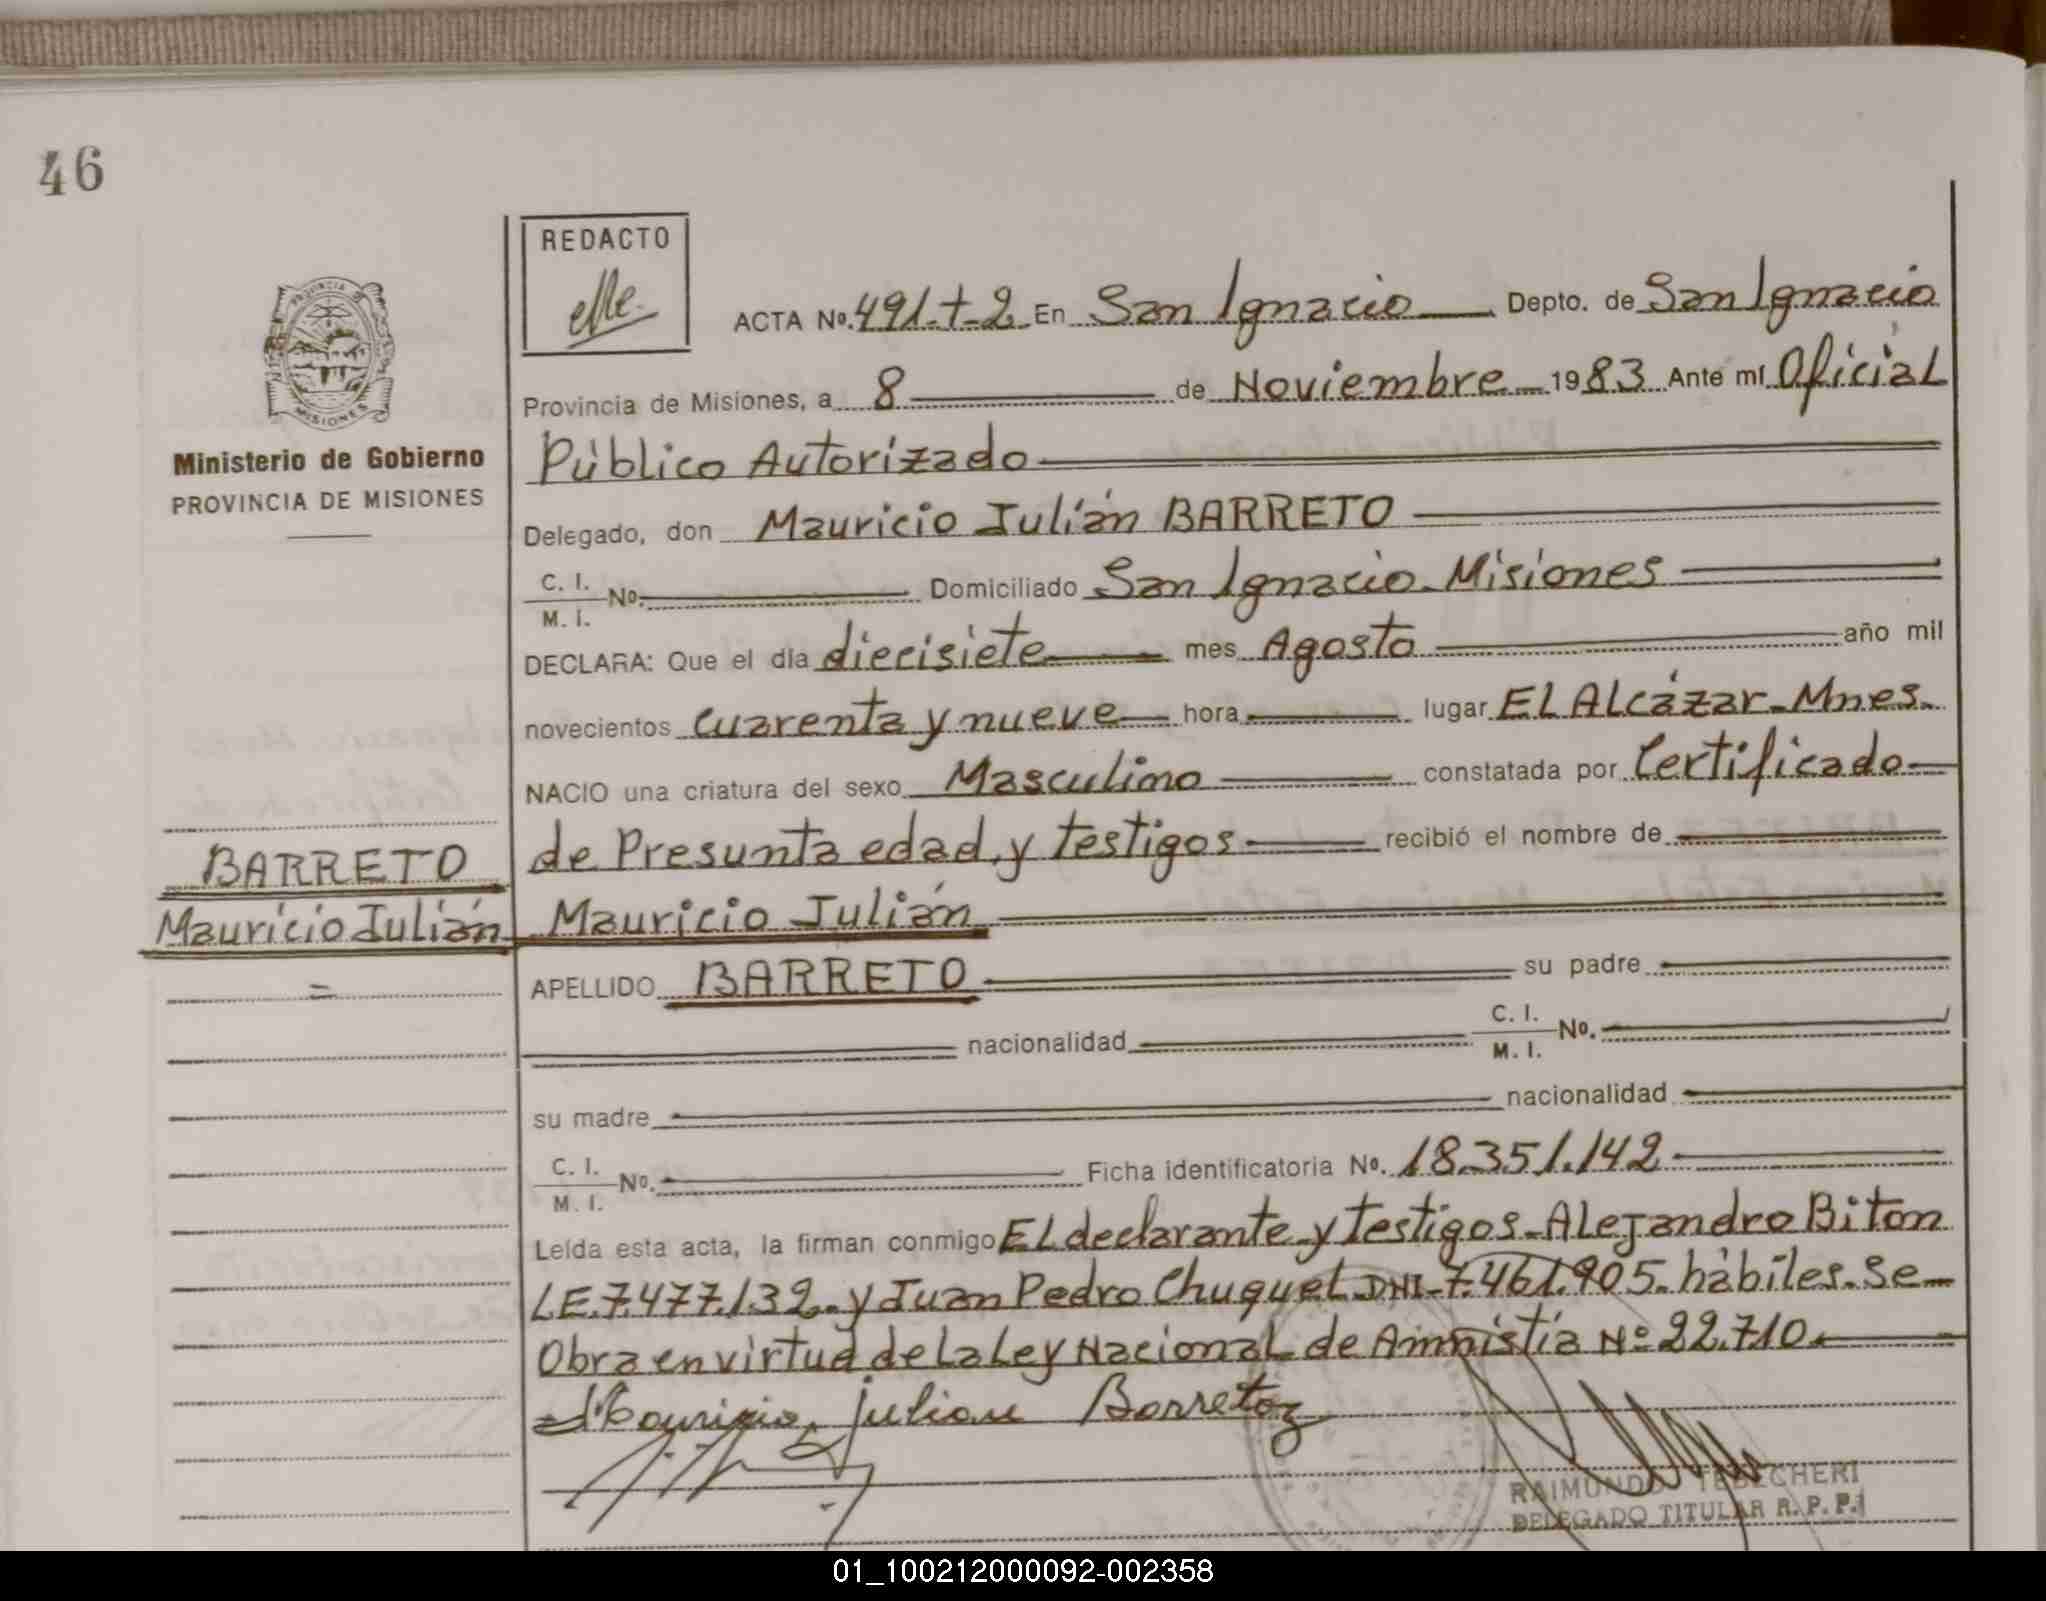 46
REDACTO
ACTA Nº. 491-T-2 En San Ignacio Depto. de San Ignacio
Provincia de Misiones, a 8 de Noviembre 1983 Ante mí Oficial
Público Autorizado
Delegado, don Mauricio Julián BARRETO
C. I.
M. I. Nº. Domiciliado San Ignacio - Misiones
DECLARA: Que el día diecisiete mes Agosto año mil
novecientos cuarenta y nueve hora lugar El Alcázar - Mnes.
NACIO una criatura del sexo Masculino constatada por Certificado
de Presunta edad, y testigos recibió el nombre de
Mauricio Julián
APELLIDO BARRETO su padre
nacionalidad C. I.
M. I. Nº.
su madre nacionalidad
C. I.
M. I. Nº. Ficha identificatoria Nº. 18.351.142
Leída esta acta, la firman conmigo El declarante y testigos - Alejandro Biton
LE. 7.477.132 - y Juan Pedro Chuquel DNI - 7.461.905. hábiles. Se
Obra en virtud de la Ley Nacional de Amnistía Nº 22.710.
Mauricio Julian Barreto
RAIMUNDO TEDECHERI
DELEGADO TITULAR R. P. P.
PROVINCIA DE
MISIONES
Ministerio de Gobierno
PROVINCIA DE MISIONES
BARRETO
Mauricio Julián
=
01_100212000092-002358